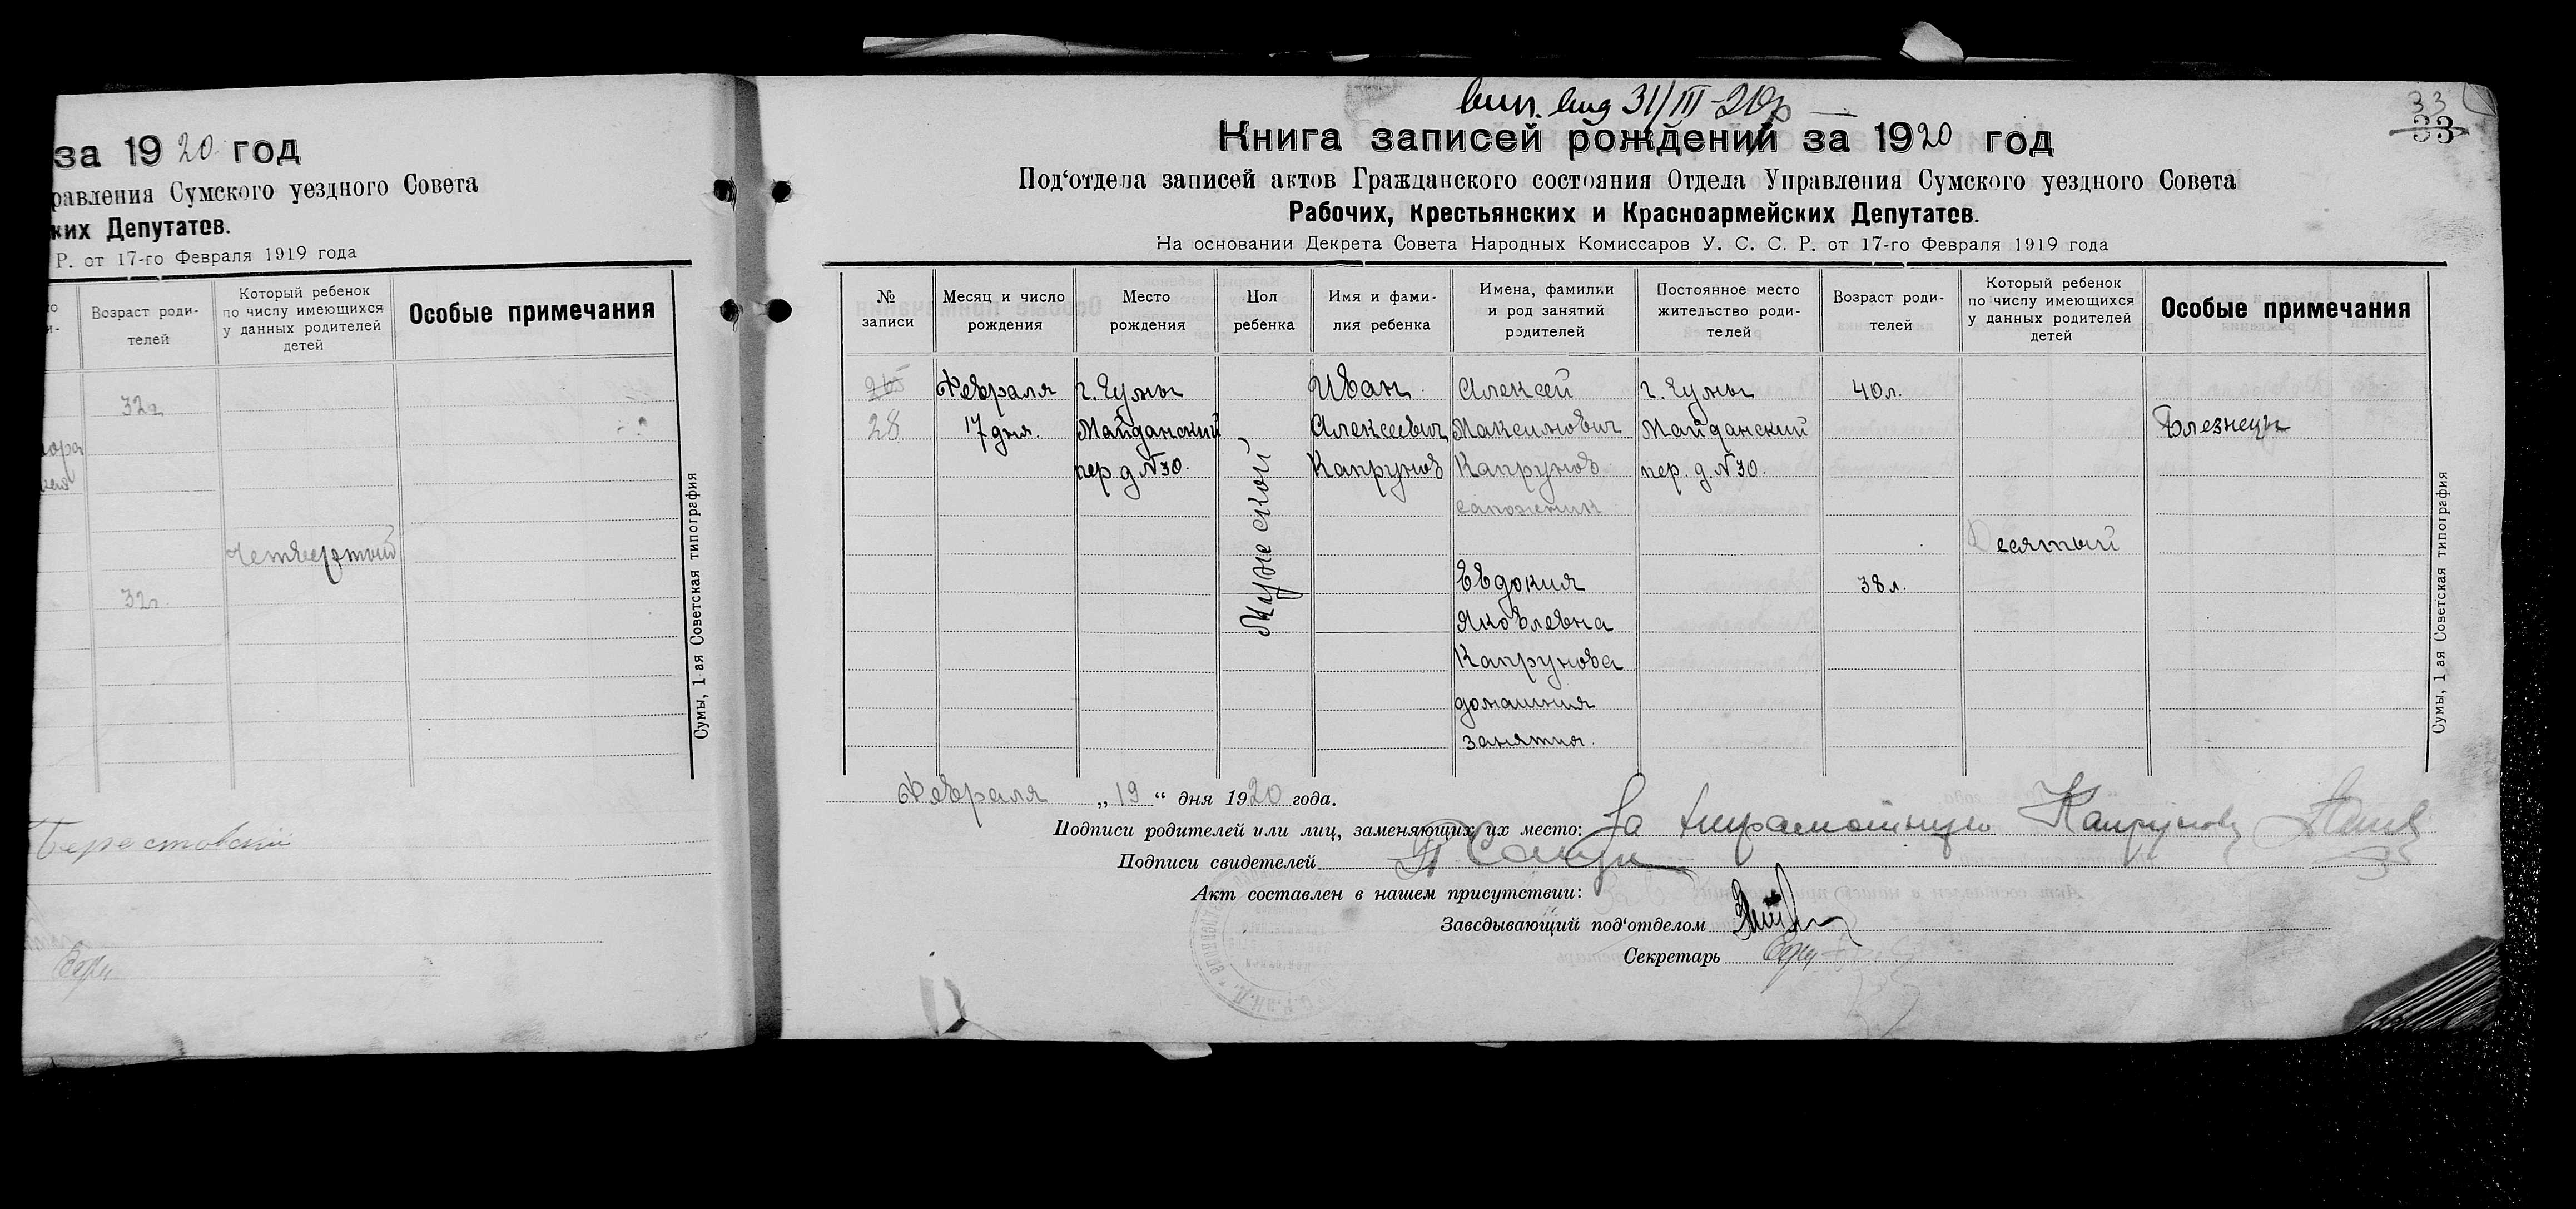 за 1920 год
равления Сумского уездного Совета
ких Депутатов.
Р. от 17-го Февраля 1919 года
Возраст роди-
телей
Который ребенок
по числу имеющихся
у данных родителей
детей
Особые примечания
32г.
Четвертый
32г.
Берестовский
Сумы, 1-ая Советская типография
вып. выд 31/III-20г
33
33
Книга записей рождений за 1920 год
Под‘отдела записей актов Гражданского состояния Отдела Управления Сумского уездного Совета
Рабочих, Крестьянских и Красноармейских Депутатов.
На основании Декрета Совета Народных Комиссаров У. С. С. Р. от 17-го Февраля 1919 года
№
записи
Месяц и число
рождения
Место
рождения
Пол
ребенка
Имя и фами-
лия ребенка
Имена, фамилии
и род занятий
родителей
Постоянное место
жительство роди-
телей
Возраст роди-
телей
Который ребенок
по числу имеющихся
у данных родителей
детей
Особые примечания
28
Февраля
17 дня.
г. Сумы
Майданский
пер. д. №30.
Мужеской
Иван
Алексеевич
Капрунов
Алексей
Максимович
Капрунов
сапожник
Евдокия
Яковлевна
Капрунова
домашния
занятия.
г. Сумы
Майданский
пер. д. №30.
40л.
38л.
Десятый
Близнецы
Сумы, 1-ая Советская типография
Февраля „19“ дня 1920 года.
Подписи родителей или лиц, заменяющих их место: За неграмотную Капрунову
Подписи свидетелей
Акт составлен в нашем присутствии:
Заведывающий под‘отделом
Секретарь